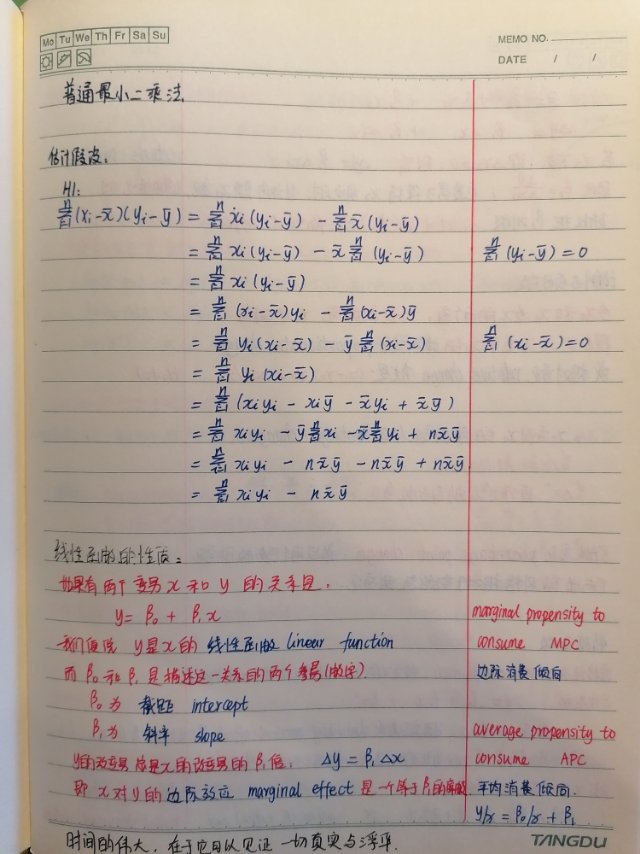 Mo Tu We Th Fr Sa Su
MEMO NO.
DATE / /
普通最小二乘法
估计假设:
H1:
n∑i=1(xi-x̄)(yi-ȳ) = n∑i=1 xi(yi-ȳ) - n∑i=1 x̄(yi-ȳ)
= n∑i=1 xi(yi-ȳ) - x̄ n∑i=1 (yi-ȳ) n∑i=1 (yi-ȳ)=0
= n∑i=1 xi(yi-ȳ)
= n∑i=1 (xi-x̄)yi - n∑i=1 (xi-x̄)ȳ
= n∑i=1 yi(xi-x̄) - ȳ n∑i=1 (xi-x̄) n∑i=1 (xi-x̄)=0
= n∑i=1 yi(xi-x̄)
= n∑i=1 (xiyi - xiȳ - x̄yi + x̄ȳ)
= n∑i=1 xiyi - ȳ n∑i=1 xi - x̄ n∑i=1 yi + nx̄ȳ
= n∑i=1 xiyi - nx̄ȳ - nx̄ȳ + nx̄ȳ
= n∑i=1 xiyi - nx̄ȳ
线性函数的性质:
如果有两个变量 x 和 y 的关系是:
y= β0 + β1x
我们便说 y是x的 线性函数 linear function
而 β0 和 β1 是描述这一关系的两个参量(数字)
β0 为 截距 intercept
β1 为 斜率 slope
y的改变量总是x的改变量的β1倍. Δy = β1Δx
即 x对y的边际效应 marginal effect 是一个等于β1的常数
marginal propensity to
consume MPC
边际消费倾向
average propensity to
consume APC
平均消费倾向.
y/x = β0/x + β1
时间的伟大, 在于它可以见证一切真实与浮华.
TANGDU